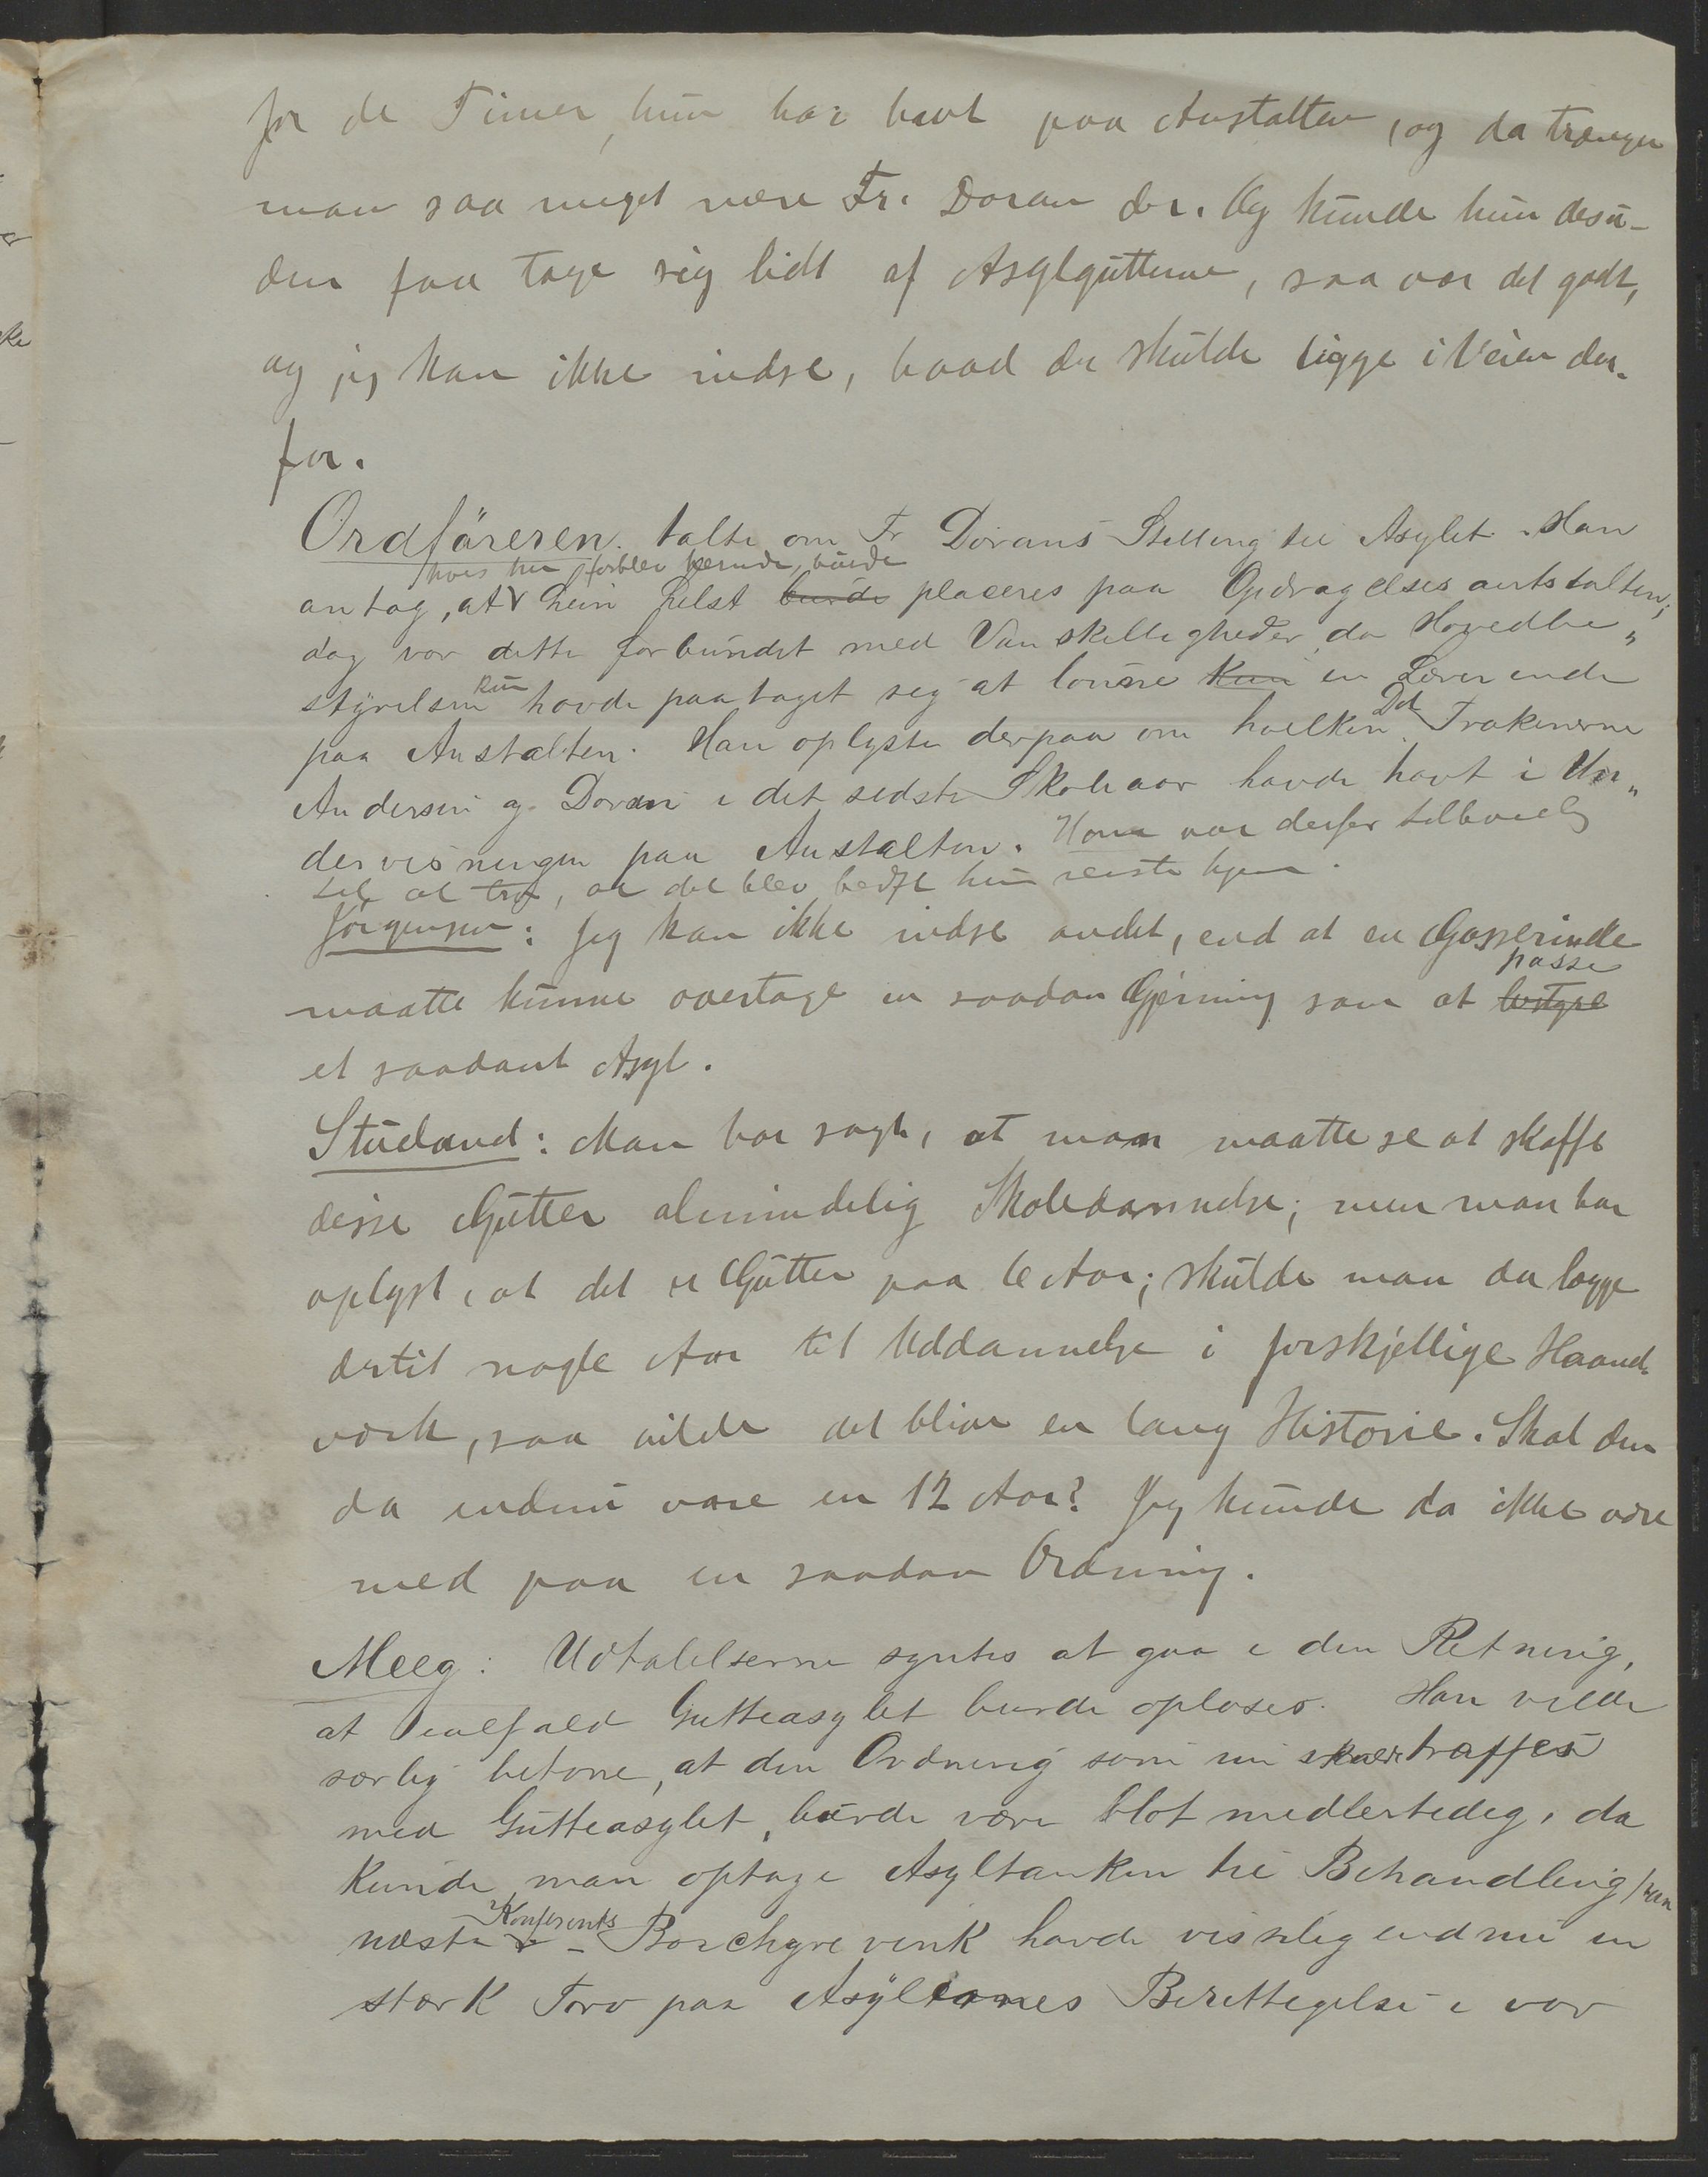 for de Timer, hun har havt paa Anstalten, og da trænges
man saa meget mere Frk. Doran der. Og kunde hun desu-
den faa tage sig lidt af Asylgutterne, saa var det godt,
og jeg kan ikke indse, hvad der skulde ligge i Veien der-
for.
Ordföreren talte om Fr Dorans Stilling til Asylet. Han
hvis hun forblev herude, burde
antog, at hun helst burde placeres paa Opdragelsesanstalten;
dog var dette forbundet med Vanskeligheder, da Hovedbe„
styrelsen kun havde paataget sig at lønne kun en Lærerinde
paa Anstalten. Han oplyste derpaa om hvilken Del Frøkenerne
Andersen og Doran i det sidste Skoleaar havde havt i Un„
dervisningen paa Anstalten. Han var derfor tilbøielig
til at tro, at det blev bedst hun reiste hjem.
Jörgensen: Jeg kan ikke indse andet, end at en Gasserinde
passe
maatte kunne overtage en saadan Gjerning som at bestyre
et saadant Asyl.
Studand: Man har sagt, at man maatte se at skaffe
disse Gutter almindelig Skoledannelse; men man har
oplyst, at det er Gutter paa 6 Aar; skulde man da lægge
dertil nogle Aar til Uddannelse i forskjellige Haand-
værk, saa vilde det blive en lang Historie. Skal den
da endnu vare en 12 Aar? Jeg kunde da ikke være
med paa en saadan Ordning.
Meeg: Udtalelserne syntes at gaa i den Retning,
at ialfald Gutteasylet burde opløses. Han vilde
særlig betone, at den Ordning som nu træffes
med Gutteasylet, burde være blot midlertidig, da
kunde man optage Asyltanken til Behandling
næste Konferents - Borchgrevink havde visselig endnu en
stærk Tro paa Asylernes Berettigelse i vor